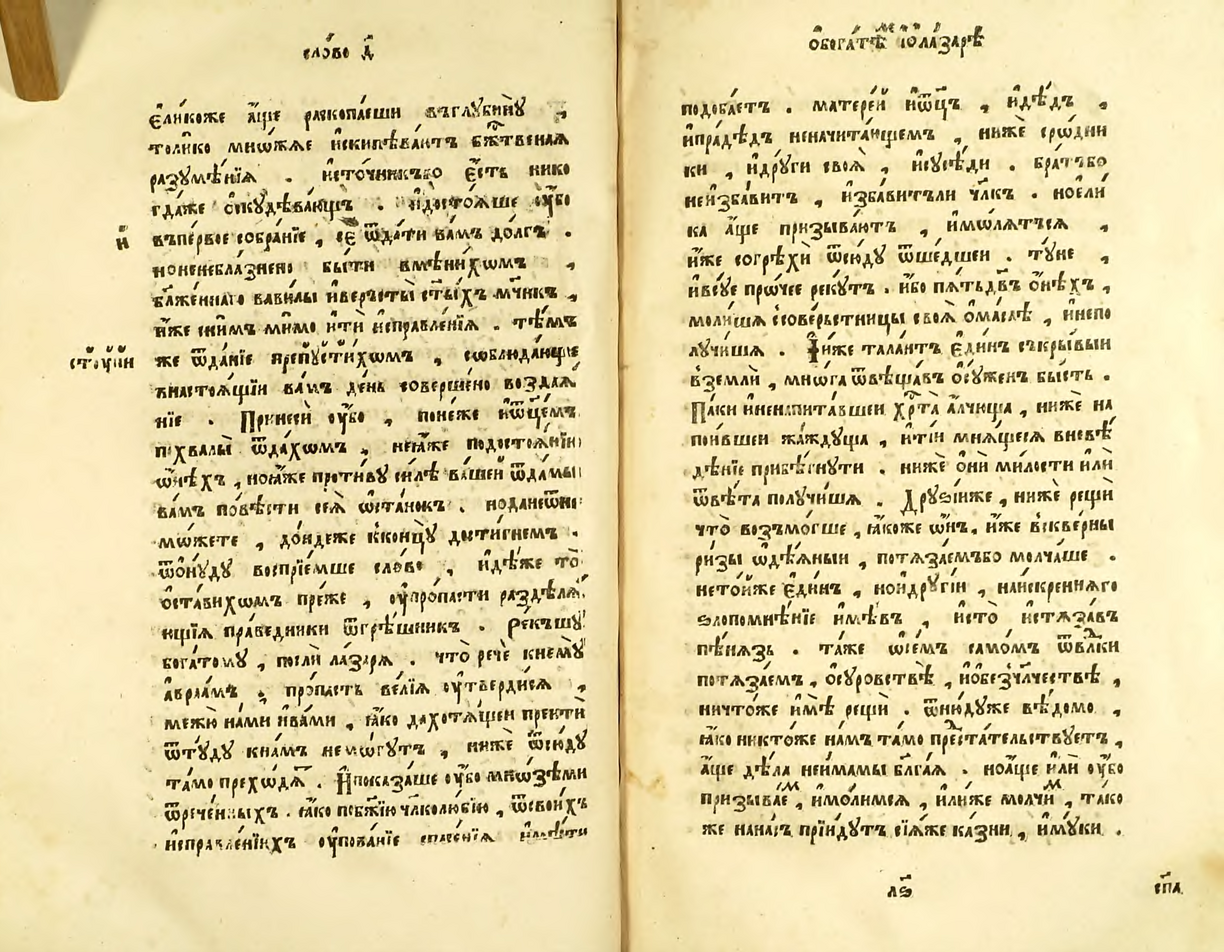 сло́во д҃
є҆ли́коже а҆́ще раскопа́еши въглꙋбинꙋ̀ ,
толико мно́жае и҆скипѣва́етъ бж҃твеная
разꙋмѣ́нїѧ . и҆сто́чникъбо є҆́сть нико
гда́же ѡ҆скꙋдѣва́ющъ . и҆досто́ѧше ᲂу҆́бо
и҆̀
въпе́рвое собра́нїе , сѐ ѿда́ти ва́мъ до́лгъ .
ноненебла́знено бы́ти вмѣни́хѡмъ ,
блаже́ннаго вави́лы и҆версты̀ ст҃ы́хъ мч҃нкъ ,
и҆́же сни́мъ ми́мо и҆тѝ и҆справле́нїѧ . тѣ́мъ
же ѿда́нїе препꙋсти́хѡмъ , соблюда́юще
внастоѧ́щїи ва́мъ де́нь соверше́но возда́ѧ
нїе . Принесе́й ᲂу҆́бо , поне́же и҆ѿце́мъ
похвалы̀ ѿда́хѡмъ , неꙗ҆́же подостоѧ́нїю
ѻ҆нѣ́хъ , ноꙗ҆́же проти́вꙋ си́лѣ ва́шей ѿда́мы
ва́мъ по́вѣсти сеѧ̀ ѡ҆ста́нокъ . нода́неѿне
мѡ́жете , до́ндеже кконцꙋ̀ дости́гнемъ .
ѿѻнꙋ́дꙋ воспрїе́мше сло́во , и҆дѣ́же то̀
ѡ҆ста́вихѡмъ пре́же , ᲂу҆про́пасти раздѣлѧ́
ющїѧ пра́ведники ѿгрѣ́шникъ . Ре́къшꙋ
бога́томꙋ , послѝ ла́зарѧ . что̀ речѐ кнемꙋ̀
а҆враа́мъ , про́пасть ве́лїѧ ᲂу҆тверди́сѧ ,
межю̀ на́ми и҆ва́ми , ꙗ҆́ко дахотѧ́щеи преитѝ
ѿтꙋ́дꙋ кна́мъ немо́гꙋтъ , нижѐ ѿсю́дꙋ
та́мо прехо́дѧт . И҆показа́ше ᲂу҆́бо мно́зѣми
ѿрече́нныхъ . ꙗ҆́ко побж҃їю чл҃колю́бїю , ѿсвои́хъ
и҆справле́нїихъ ᲂу҆пова́нїе спасе́нїѧ и҆мѣ́ти
ѻ҆бога́тѣм и҆ѻла́зарѣ
подоба́етъ . матере́й и҆ѿц҃ъ , и҆дѣ́дъ ,
и҆пра́дѣдъ неначита́ющемъ , нижѐ сро́дни
ки , и҆дрꙋ́ги своѧ̀ , и҆сꙋсѣ́ди . бра́тъбо
неи҆зба́витъ , и҆зба́витъли чл҃къ . ное҆ли́
ка а҆́ще призыва́ютъ , и҆мо́лѧтъсѧ ,
и҆́же согрѣхѝ ѿсю́дꙋ ѿше́дшеи . тꙋ́не ,
и҆всꙋ́е про́чее рекꙋ́тъ . и҆́бо пѧ́тьдв҃ъ ѻ҆нѣ́хъ ,
моли́шѧ ссове́рьстницы своѧ̀ ѻ҆ма́слѣ , и҆непо
лꙋчи́шѧ . И҆и҆же тала́нтъ є҆ди́нъ съкры́выи
вземлѝ , мно́га ѿвѣща́въ ѡ҆сꙋ́женъ бы́сть .
Па́ки и҆ненапита́вшеи хрⷭ҇та̀ а҆́лчюща , нижѐ на
пои́вшеи жа́ждꙋща , и҆ті́и мнѧ́щесѧ вневѣ́
дѣнїе прибѣ́гнꙋти . нижѐ ѻ҆нѝ ми́лости и҆лѝ
ѿвѣ́та полꙋчи́шѧ . Дрꙋзі́иже , нижѐ рещѝ
что̀ возъмо́гше , ꙗ҆́коже ѻ҆́нъ , и҆́же вскве́рны
ри́зы ѡ҆дѣ́ѧныи , потѧза́емъбо молча́ше .
нето́йже є҆ди́нъ , но́идрꙋгі́и , наи́скренѧго
ѕлопомнѣ́нїе и҆мѣ́въ , и҆сто̀ и҆стѧза́въ
пѣ́нѧзь . та́же ѡ҆се́мъ само́мъ ѿвл҃ки
потѧза́емъ , ѻ҆сꙋ́ровствѣ , и҆ѻбезчл҃чествѣ ,
ничто́же и҆мѣ̀ рещѝ . ѿню́дꙋже вѣ́домо ,
ꙗ҆́ко никто́же на́мъ та́мо предста́тельствꙋетъ ,
а҆́ще дѣ́ла неи́мамы бл҃га́ѧ . ноа́ще и҆лѝ ᲂу҆́бо
призыва́ем , и҆мо́лимсѧ , и҆ли́же молчи́м , та́ко
же нана́съ прїи́дꙋтъ сїѧ́же ка́зни , и҆мꙋ́ки .
лѕ҃
спа